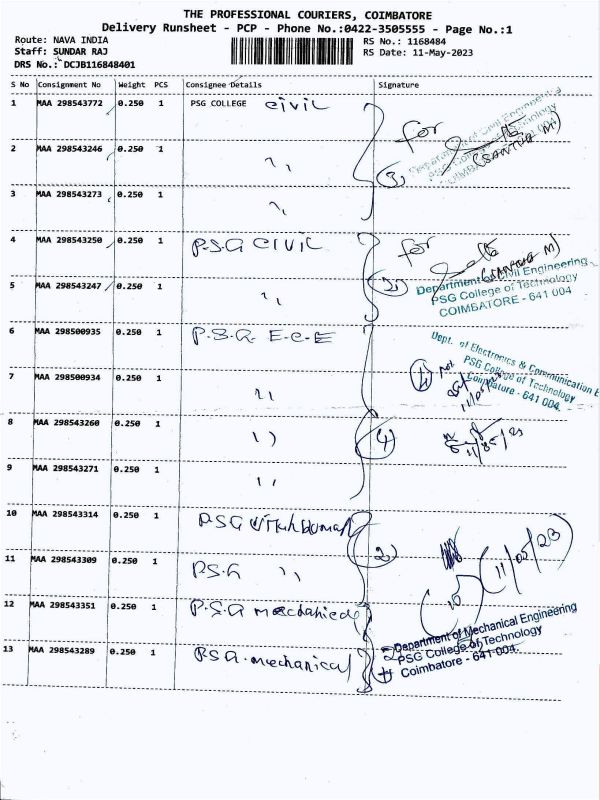 THE PROFESSIONAL COURIERS, COIMBATORE
Delivery Runsheet - PCP - Phone No.:0422-3505555 - Page No.:1
Route: NAVA INDIA
Staff: SUNDAR RAJ
DRS No.: DCJB116848401
RS No.: 1168484
RS Date: 11-May-2023
S No Consignment No Weight PCS Consignee Details Signature
1 MAA 298543772 0.250 1 PSG COLLEGE CIVIL
2 MAA 298543246 0.250 1 ,,
3 MAA 298543273 0.250 1 ,,
for
(SANTHA M)
Department of Civil Engineering
PSG College of Technology
COIMBATORE - 641 004
(3)
4 MAA 298543250 0.250 1 P.S.G CIVIL
5 MAA 298543247 0.250 1 ,,
for
(SANTHA M)
Department of Civil Engineering
PSG College of Technology
COIMBATORE - 641 004
6 MAA 298500935 0.250 1 P.S.G. E.C.E
7 MAA 298500934 0.250 1 ,,
8 MAA 298543260 0.250 1 ,,
9 MAA 298543271 0.250 1 ,,
Dept. of Electronics & Communication E
PSG College of Technology
Coimbatore - 641 004.
(4)
10 MAA 298543314 0.250 1 PSG
11 MAA 298543309 0.250 1 PSG ,,
(2)
11/05/23
12 MAA 298543351 0.250 1 P.S.G mechanical
13 MAA 298543289 0.250 1 PSG.mechanical
Department of Mechanical Engineering
PSG College of Technology
Coimbatore - 641 004.